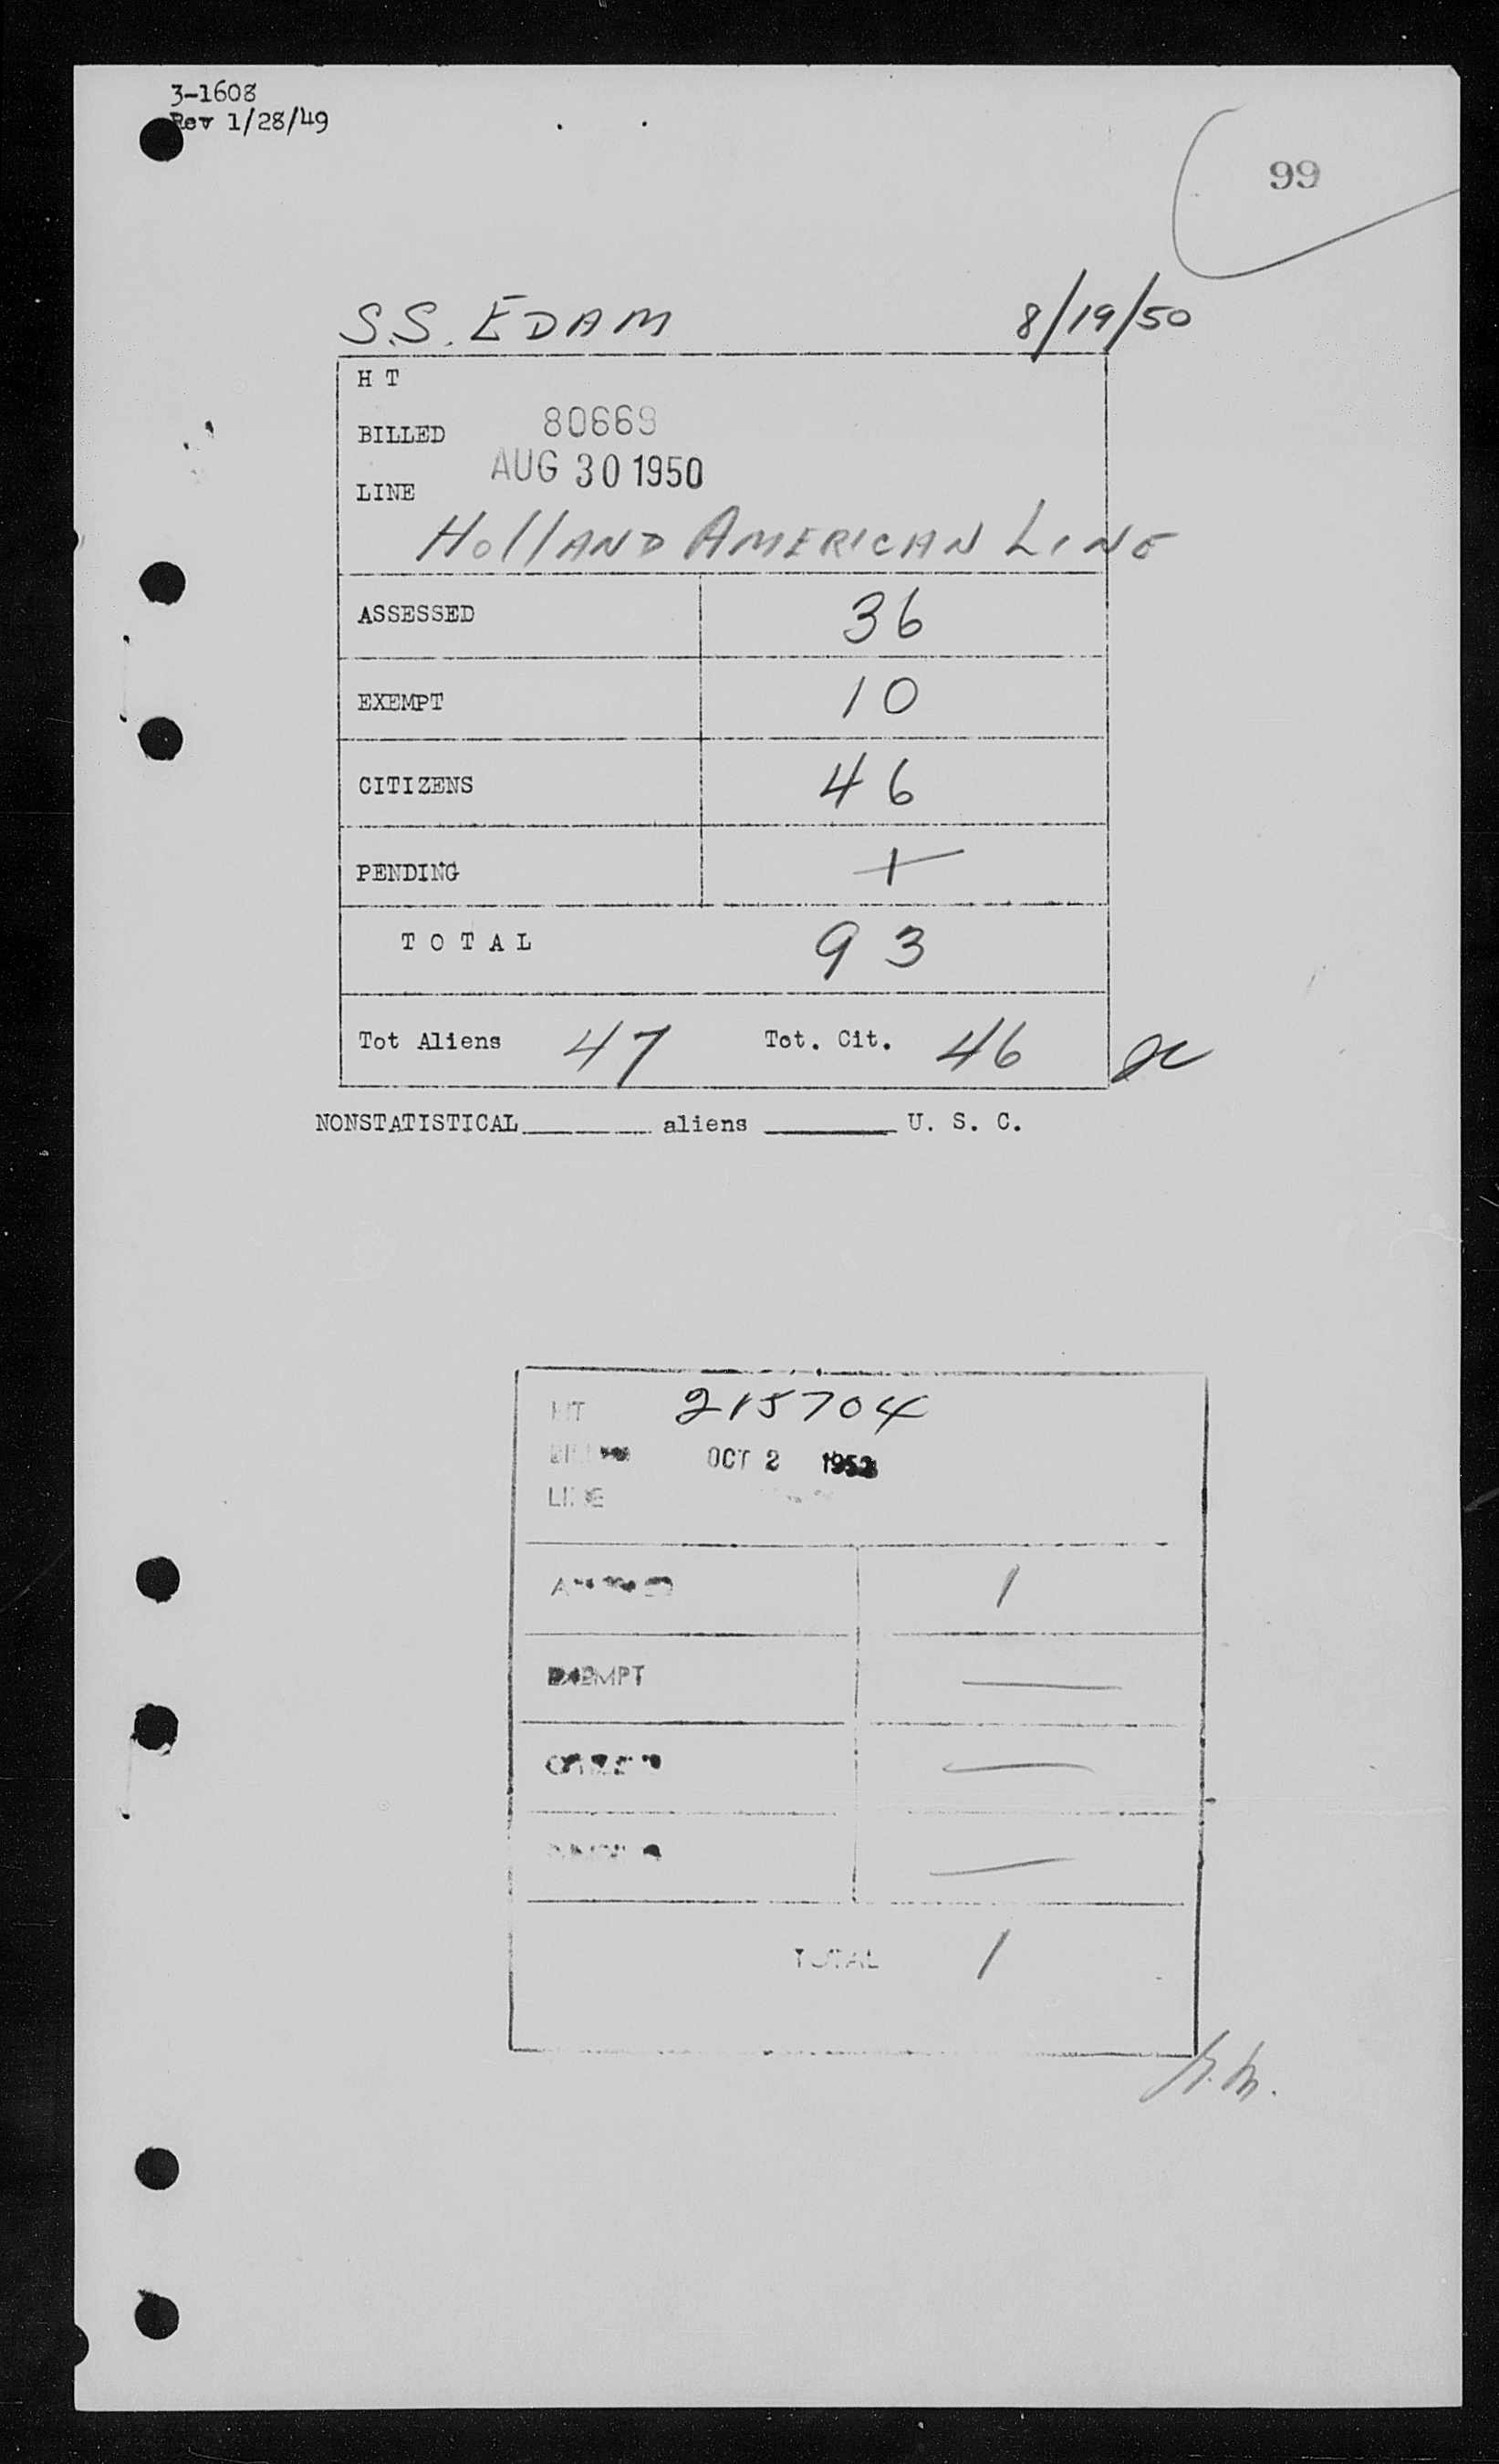 3-1608
Rev 1/28/49
99
S.S. EDAM 8/19/50
H T
BILLED 80669
AUG 30 1950
LINE
HollAND AMERICAN LINE
ASSESSED 36
EXEMPT 10
CITIZENS 46
PENDING 1
TOTAL 93
Tot Aliens 47 Tot. Cit. 46
NONSTATISTICAL aliens U. S. C.
HT 215704
OCT 2 1952
LINE
1
EXEMPT —
—
—
TOTAL 1